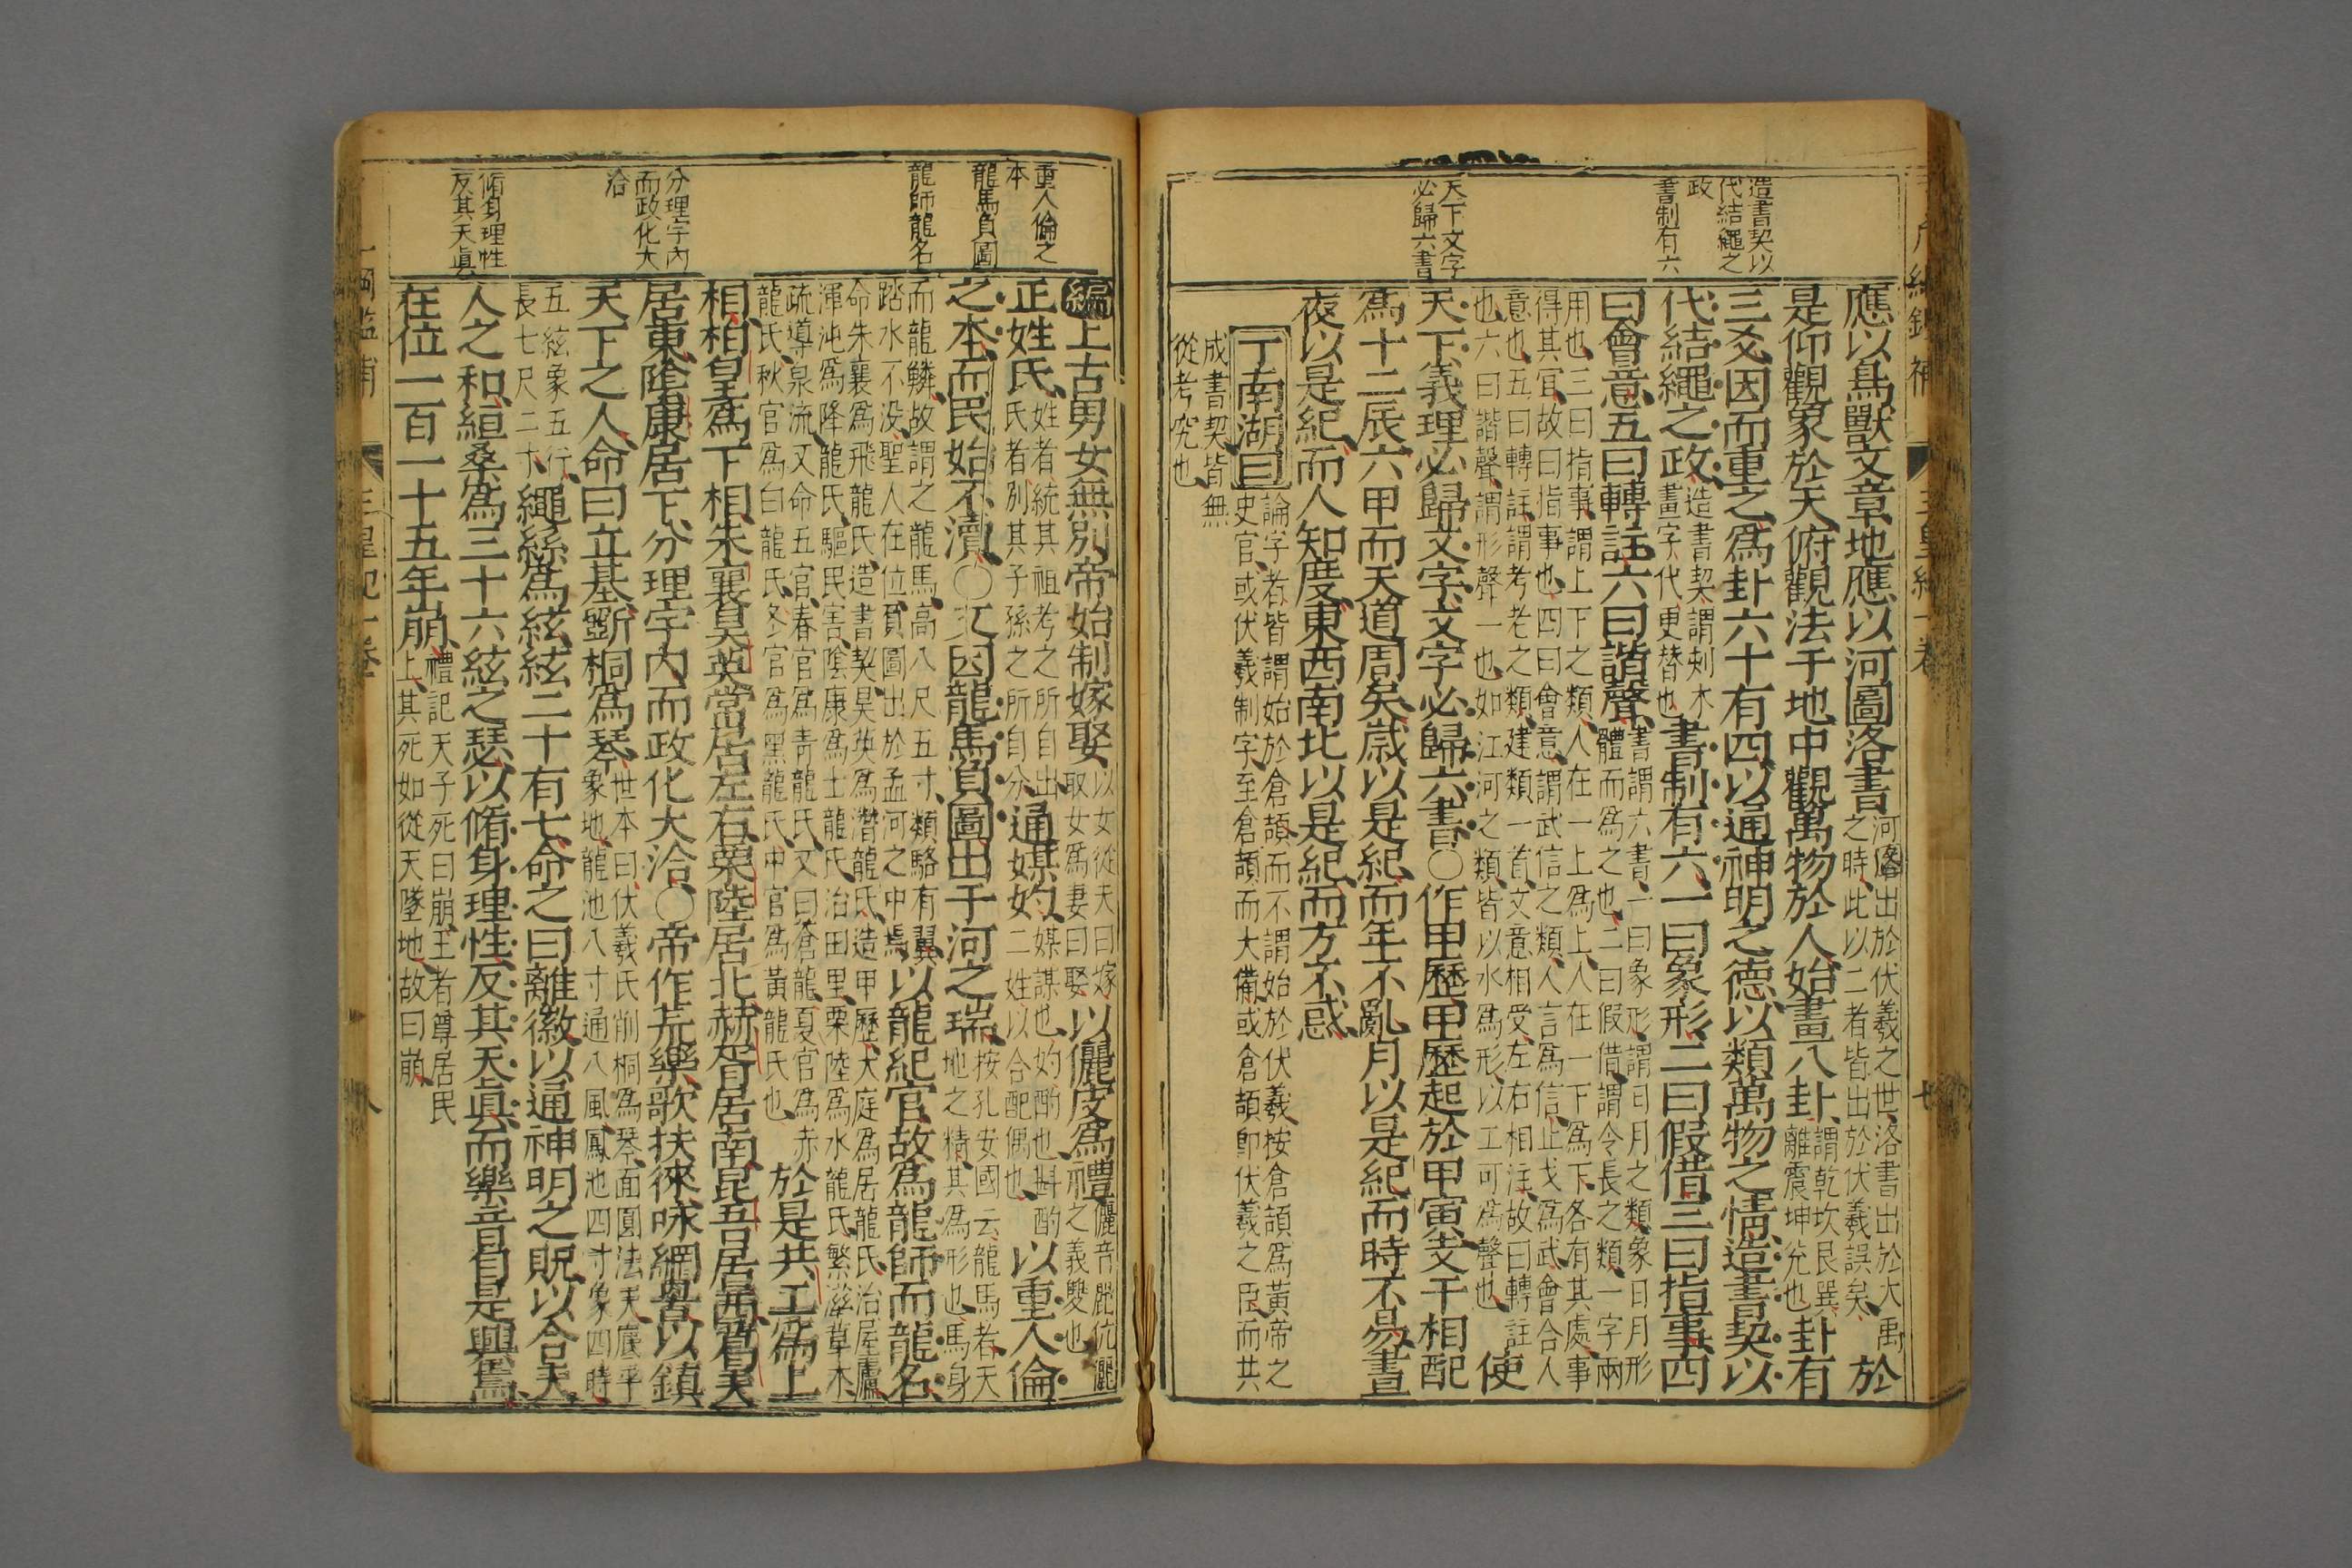 造書契以
代結繩之
政
書制有六
天下文字
必歸六書
應以鳥獸文章地應以河圖洛書河圖出於伏羲之世洛書出於大禹之時此以二者皆出於伏羲誤矣於
是仰觀象於天俯觀法于地中觀萬物於人始畫八卦謂乾坎艮巽離震坤兌也卦有
三爻因而重之爲卦六十有四以通神明之德以類萬物之情造書契以
代結繩之政造書契謂刺木畫字代更替也書制有六一曰象形二曰假借三曰指事四
曰會意五曰轉註六曰諧聲書謂六書一曰象形謂日月之類象日月形體而爲之也二曰假借謂令長之類一字兩
用也三曰指事謂上下之類人在一上爲上人在一下爲下各有其處事
得其宜故曰指事也四曰會意謂武信之類人言爲信止戈爲武會合人
意也五曰轉註謂考老之類建類一首文意相受左右相注故曰轉註
也六曰諧聲謂形聲一也如江河之類皆以水爲形以工可爲聲也使
天下義理必歸文字文字必歸六書〇作甲歷甲歷起於甲寅支干相配
爲十二辰六甲而天道周矣歲以是紀而年不亂月以是紀而時不易晝
夜以是紀而人知度東西南北以是紀而方不惑
丁南湖曰論字者皆謂始於倉頡而不謂始於伏羲按倉頡爲黃帝之史官或伏羲制字至倉頡而大備或倉頡卽伏羲之臣而共
成書契皆無
從考究也
重人倫之
本
龍馬負圖
龍師龍名
分理宇內
而政化大
洽
脩身理性
反其天眞
編上古男女無別帝始制嫁娶以女從夫曰嫁取女爲妻曰娶以儷皮爲禮儷音麗伉儷之義雙也
正姓氏姓者統其祖考之所自出氏者別其子孫之所自分通媒妁媒謀也妁酌也斟酌二姓以合配偶也以重人倫
之本而民始不瀆〇因龍馬負圖出于河之瑞按孔安國云龍馬者天地之精其爲形也馬身
而龍鱗故謂之龍馬高八尺五寸類駱有翼
踏水不沒聖人在位負圖出於孟河之中焉以龍紀官故爲龍師而龍名
命朱襄爲飛龍氏造書契昊英爲潛龍氏造甲歷大庭爲居龍氏治屋廬
渾沌爲降龍氏驅民害陰康爲土龍氏治田里栗陸爲水龍氏繁滋草木
疏導泉流又命五官春官爲青龍氏又曰蒼龍夏官爲赤
龍氏秋官爲白龍氏冬官爲黑龍氏中官爲黃龍氏也於是共工爲上
相柏皇爲下相朱襄昊英常居左右栗陸居北赫胥居南昆吾居西葛天
居東陰康居下分理宇內而政化大洽〇帝作荒樂歌扶徠咏網罟以鎮
天下之人命曰立基斲桐爲琴世本曰伏羲氏削桐爲琴面圓法天底平象地龍池八寸通八風鳳池四寸象四時
五絃象五行
長七尺二寸繩絲爲絃絃二十有七命之曰離徽以通神明之貺以合天
人之和絙桑爲三十六絃之瑟以脩身理性反其天眞而樂音自是興焉
在位一百一十五年崩禮記天子死曰崩王者尊居民上其死如從天墜地故曰崩
三皇紀一卷
八
三皇紀一卷
七